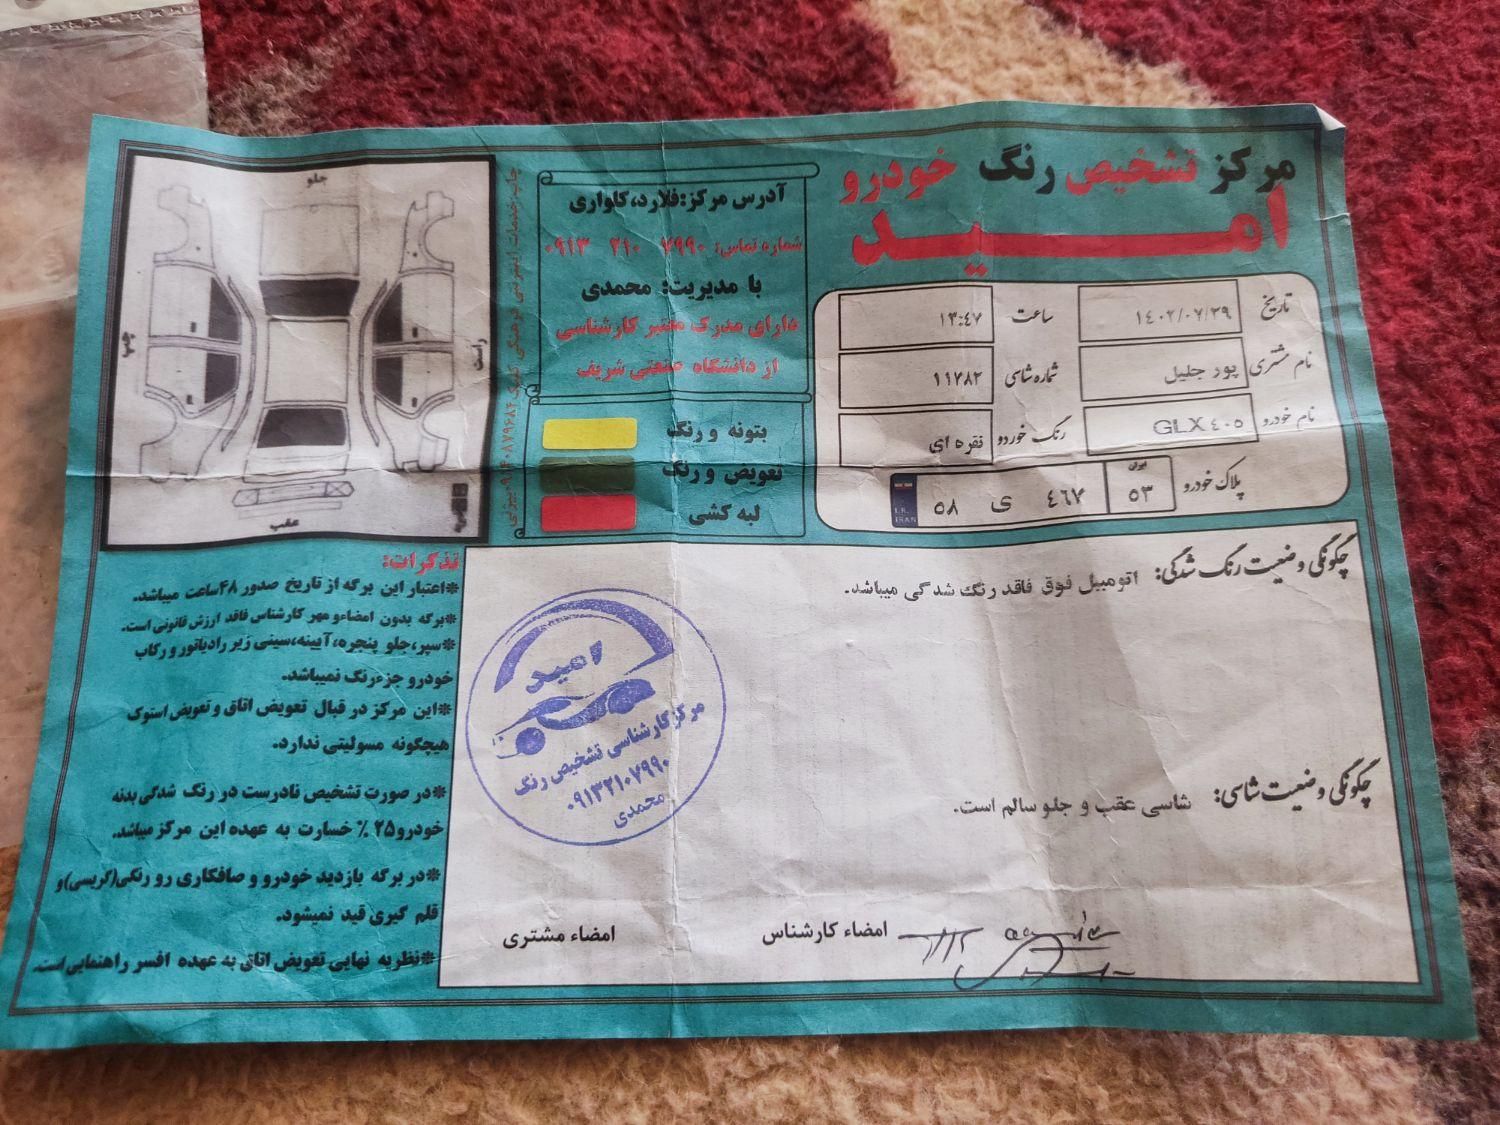 مرکز تشخیص رنگ خودرو
امید
تاریخ ۱۴۰۲/۰۶/۲۹ ساعت ۱۳:۴۷
نام مشتری پور جلیل شماره شاسی ۱۱۷۸۲
نام خودرو GLX ۴۰۵ رنگ خوردو نقره ای
پلاک خودرو ایران ۵۳ ۴۶۷ ی ۵۸ I.R. IRAN
آدرس مرکز:فلارد،کلواری
شماره تماس: ۰۹۱۳ ۲۱۰ ۷۹۹۰
با مدیریت: محمدی
دارای مدرک معتبر کارشناسی
از دانشگاه صنعتی شریف
بتونه و رنگ
تعویض و رنگ
لبه کشی
جلو
راست
چپ
عقب
چگونگی وضعیت رنگ شدگی: اتومبیل فوق فاقد رنگ شدگی میباشد.
چگونگی وضعیت شاسی: شاسی عقب و جلو سالم است.
امضاء کارشناس
امضاء مشتری
امید
مرکز کارشناسی تشخیص رنگ
۰۹۱۳۲۱۰۷۹۹۰
محمدی
تذکرات:
*اعتبار این برگه از تاریخ صدور ۴۸ساعت میباشد.
*برگه بدون امضاءو مهر کارشناس فاقد ارزش قانونی است.
*سپر،جلو پنجره،آیینه،سینی زیر رادیاتور و رکاب
خودرو جزءرنگ نمیباشد.
*این مرکز در قبال تعویض اتاق و تعویض استوک
هیچگونه مسولیتی ندارد.
*در صورت تشخیص نادرست در رنگ شدگی بدنه
خودرو۲۵ ٪ خسارت به عهده این مرکز میباشد.
*در برگه بازدید خودرو و صافکاری رو رنگی(گریسی)و
قلم گیری قید نمیشود.
*نظریه نهایی تعویض اتاق به عهده افسر راهنمایی است.